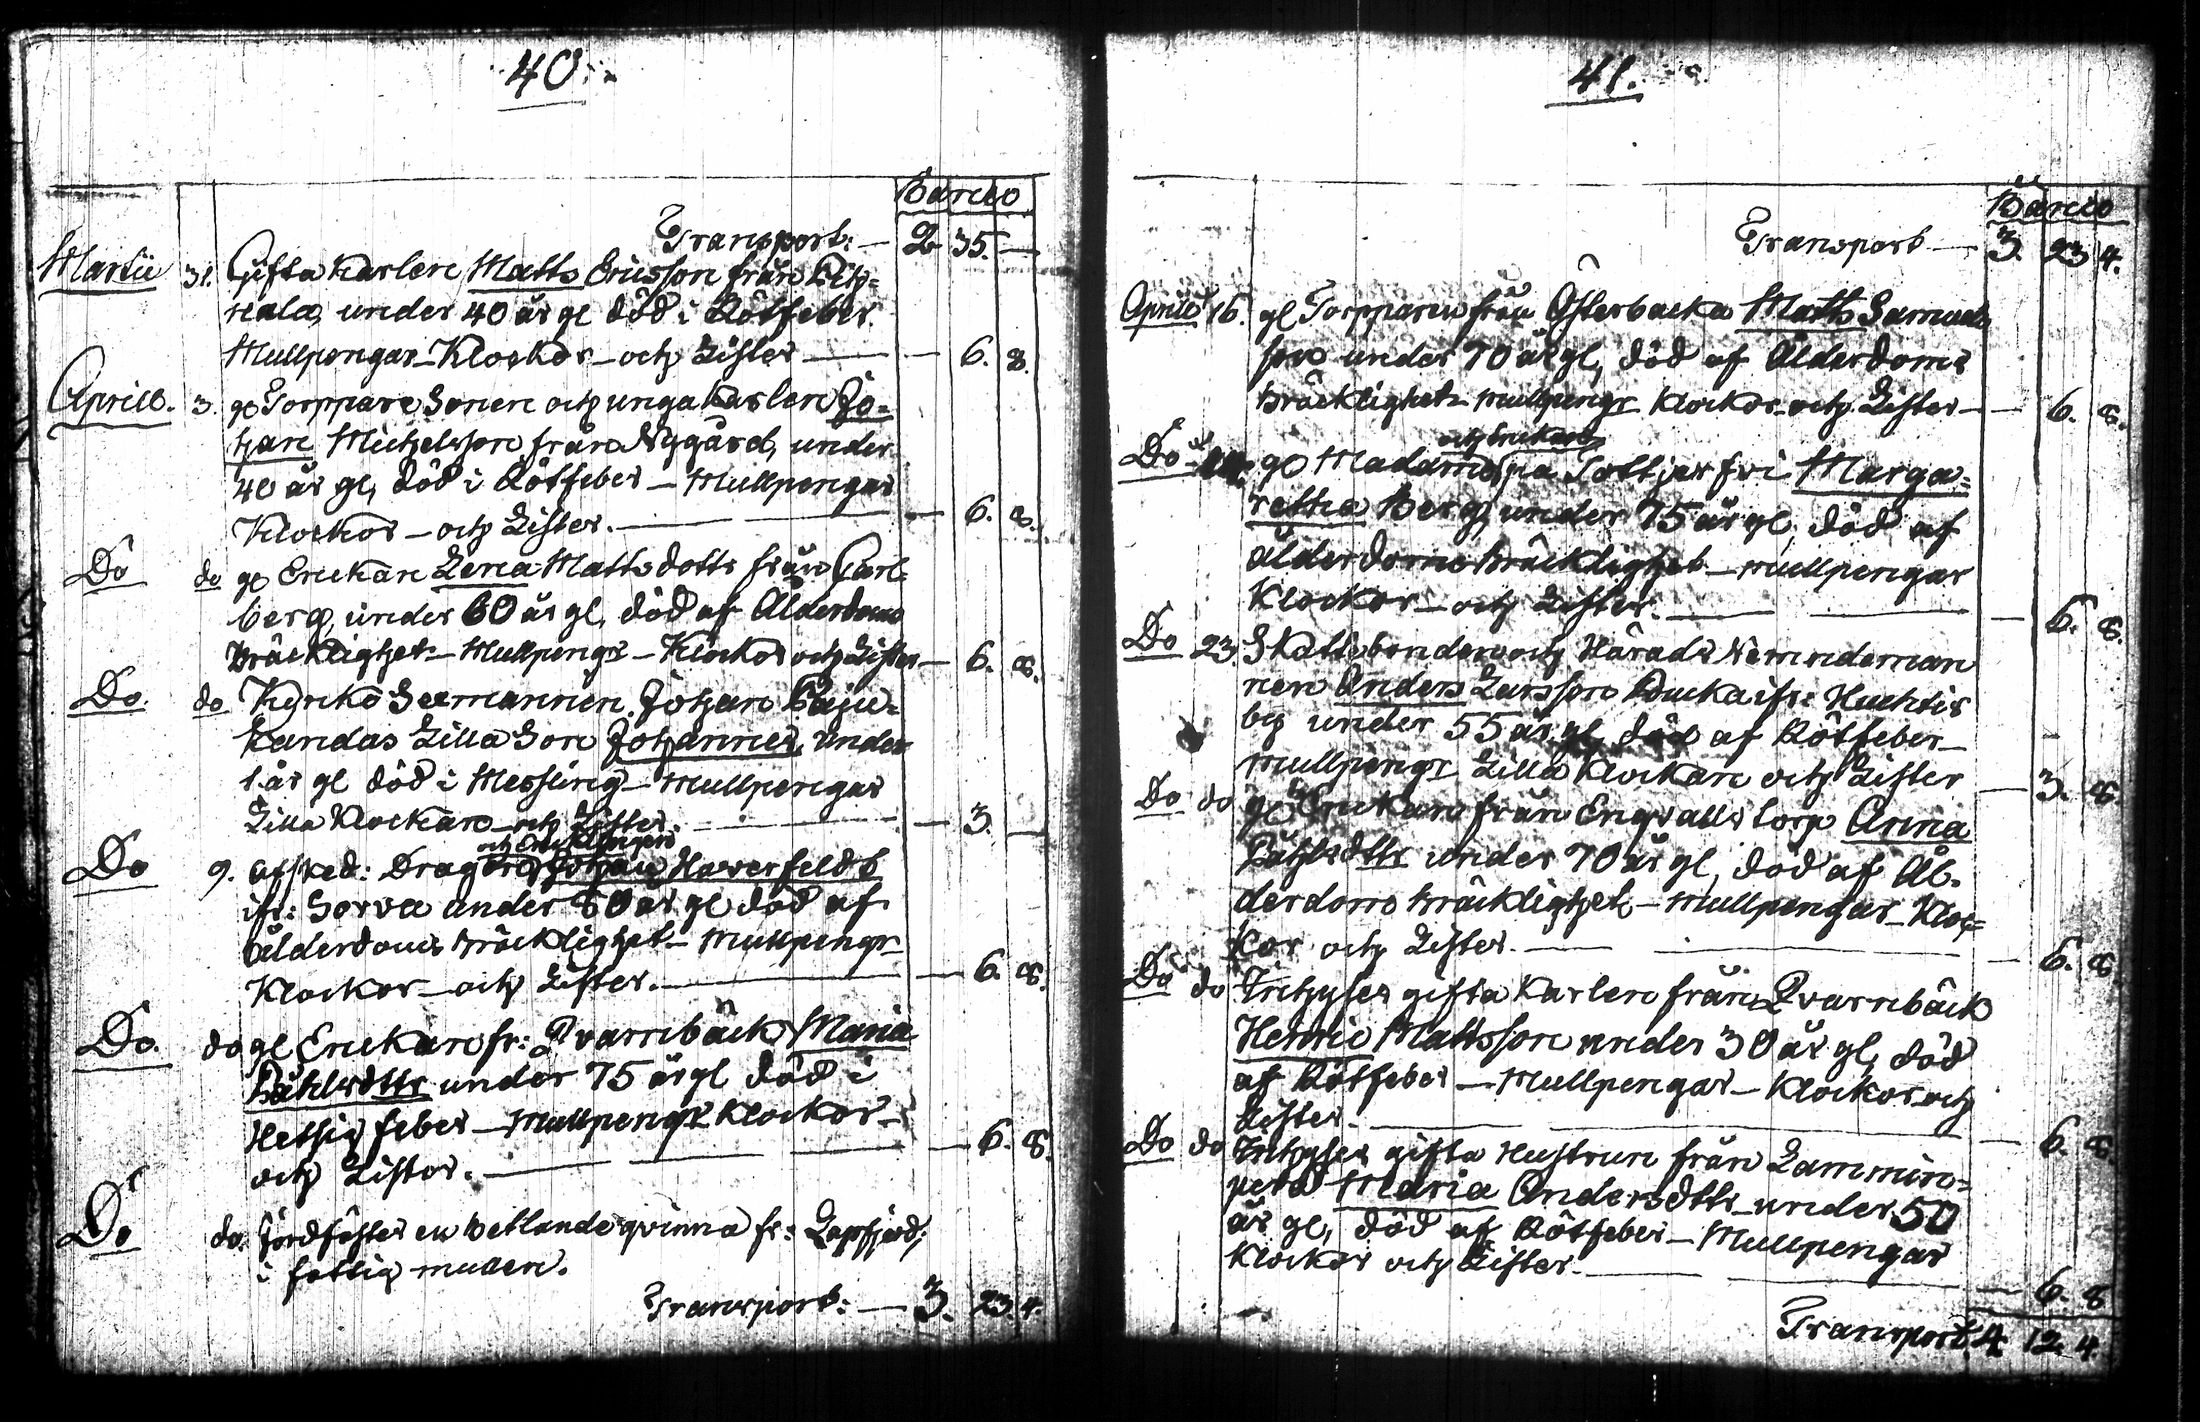 40.
Banco
Transport: — 2 35. —
Martii 31. Gifta Karlen Matts Ericsson från
nala, under 40 år gl död i Rötfeber
Mullpengar – Klockor – och Lister — — 6. 8.
Aprill. 3. gl Torppare Sonen och unga Karlen Jo=
han Michelsson från Nygård, under
40 år gl, död i Rötfeber – Mullpengar
Klockor – och Lister. — — 6. 8.
Do do gl Enckan Lena Matts dottr från Carl-
berg, under 60 år gl, död af Ålderdoms
Bräcklighet – Mullpengr – Klockor och Lister — 6. 8.
Do. do Kyrko Johan
Lilla Son Johannes, under
1. år gl död i Messling – Mullpengar
Lilla Klockan – och Lister. — — 3. —
och Enckl
Do 9. afsked: Dragon Johan Haverfeldt
ifr: Sorva under 80 år gl död af
Ålderdoms bräcklighet – Mullpengr
Klockor – och Lister. — — 6. 8.
Do. do gl Enckan fr: Qvarnbäck Maria
under 75 år gl död i
Hetsig feber – Mullpengr Klockor –
och Listor. — — 6. 8.
Do do. Jordfäster en betlande qvinna fr: Lapfjerd,
i fattig mullen.
Transport: — 3. 23. 4.
41.
Banco
Transport — 3. 23 4.
Aprill 16. gl Torpparen från Österbacka Matts Samuels
son under 70 år gl, död af Ålderdoms
bräcklighet – mullpengr Klockor och Lister — — 6. 8.
och Enckan
Do gl Madamen på Toltjerfvi Marga=
retha Berg, under 75 år gl, död af
ålderdoms bräcklighet – mullpengar
Klockor – och Lister. — — 6. 8.
Do 23. Skattebonden och Härads Nämndeman
nen Anders Larsson ifr: Huchtis
by under 55 år gl, död af Rötfeber –
mullpengr Lilla Klockan och Lister — 3. 8.
Do do gl Enckan från Engvalls torp Anna
under 70 år gl, död af Ål-
derdoms bräcklighet – mullpengar – Kloc=
kor och Lister. — — 6. 8.
Do do Inhyses gifta Karlen från Qvarnbäck
Henric Mattsson under 30 år gl, död
af Rötfeber – Mullpengar – Klockor och
Lister. — — 6. 8.
Do do Inhyses gifta Hustrun från Lammin=
Maria Andersdttr under 50
år gl, död af Rötfeber – Mullpengar
Klockor och Lister. — — 6. 8
Transport. 4 12. 4.